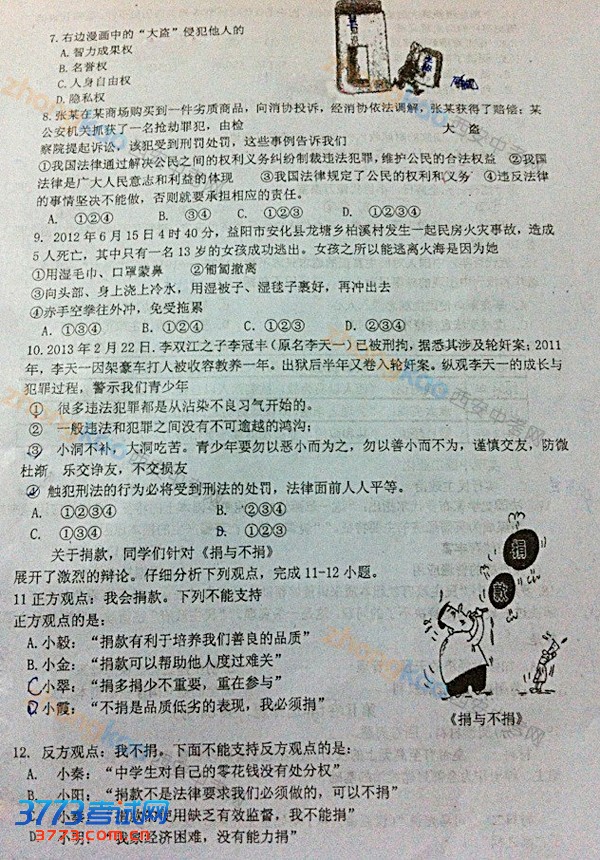 7.右边漫画中的“大盗”侵犯他人的
A.智力成果权
B.名誉权
C.人身自由权
D.隐私权
大盗
8.张某在某商场购买到一件劣质商品，向消协投诉，经消协依法调解，张某获得了赔偿；某
公安机关抓获了一名抢劫罪犯，由检
察院提起诉讼，该犯受到刑罚处罚，这些事例告诉我们
①我国法律通过解决公民之间的权利义务纠纷制裁违法犯罪，维护公民的合法权益 ②我国
法律是广大人民意志和利益的体现 ③我国法律规定了公民的权利和义务 ④违反法律
的事情坚决不能做，否则就要承担相应的责任。
A. ①②④ B. ③④ C. ①②③ D. ①②③④
9. 2012年6月15日4时40分，益阳市安化县龙塘乡柏溪村发生一起民房火灾事故，造成
5人死亡，其中只有一名13岁的女孩成功逃出。女孩之所以能逃离火海是因为她
①用湿毛巾、口罩蒙鼻 ②匍匐撤离
③向头部、身上浇上冷水，用湿被子、湿毯子裹好，再冲出去
④赤手空拳往外冲，免受拖累
A. ①③④ B. ①②③ C. ①②④ D. ②③④
10.2013年2月22日.李双江之子李冠丰（原名李天一）已被刑拘，据悉其涉及轮奸案；2011
年，李天一因架豪车打人被收容教养一年。出狱后半年又卷入轮奸案。纵观李天一的成长与
犯罪过程，警示我们青少年
① 很多违法犯罪都是从沾染不良习气开始的。
② 一般违法和犯罪之间没有不可逾越的鸿沟；
③ 小洞不补，大洞吃苦。青少年要勿以恶小而为之，勿以善小而不为，谨慎交友，防微
杜渐 乐交诤友，不交损友
④ 触犯刑法的行为必将受到刑法的处罚，法律面前人人平等。
A. ①②③④ B. ②③④
C. ①③④ D. ①②③
关于捐款，同学们针对《捐与不捐》
展开了激烈的辩论。仔细分析下列观点，完成11-12小题。
捐
款
11 正方观点：我会捐款。下列不能支持
正方观点的是：
A.小毅：“捐款有利于培养我们善良的品质”
B.小金：“捐款可以帮助他人度过难关”
C小翠：“捐多捐少不重要，重在参与”
D小霞：“不捐是品质低劣的表现，我必须捐”
《捐与不捐》
12. 反方观点：我不捐。下面不能支持反方观点的是：
A. 小秦：“中学生对自己的零花钱没有处分权”
B. 小阳：“捐款不是法律要求我们必须做的，可以不捐”
使用缺乏有效监督，我不能捐”
D. 小明：“我家经济困难，没有能力捐”
3773考试网
3773.com.cn
zhongkao西安中考网